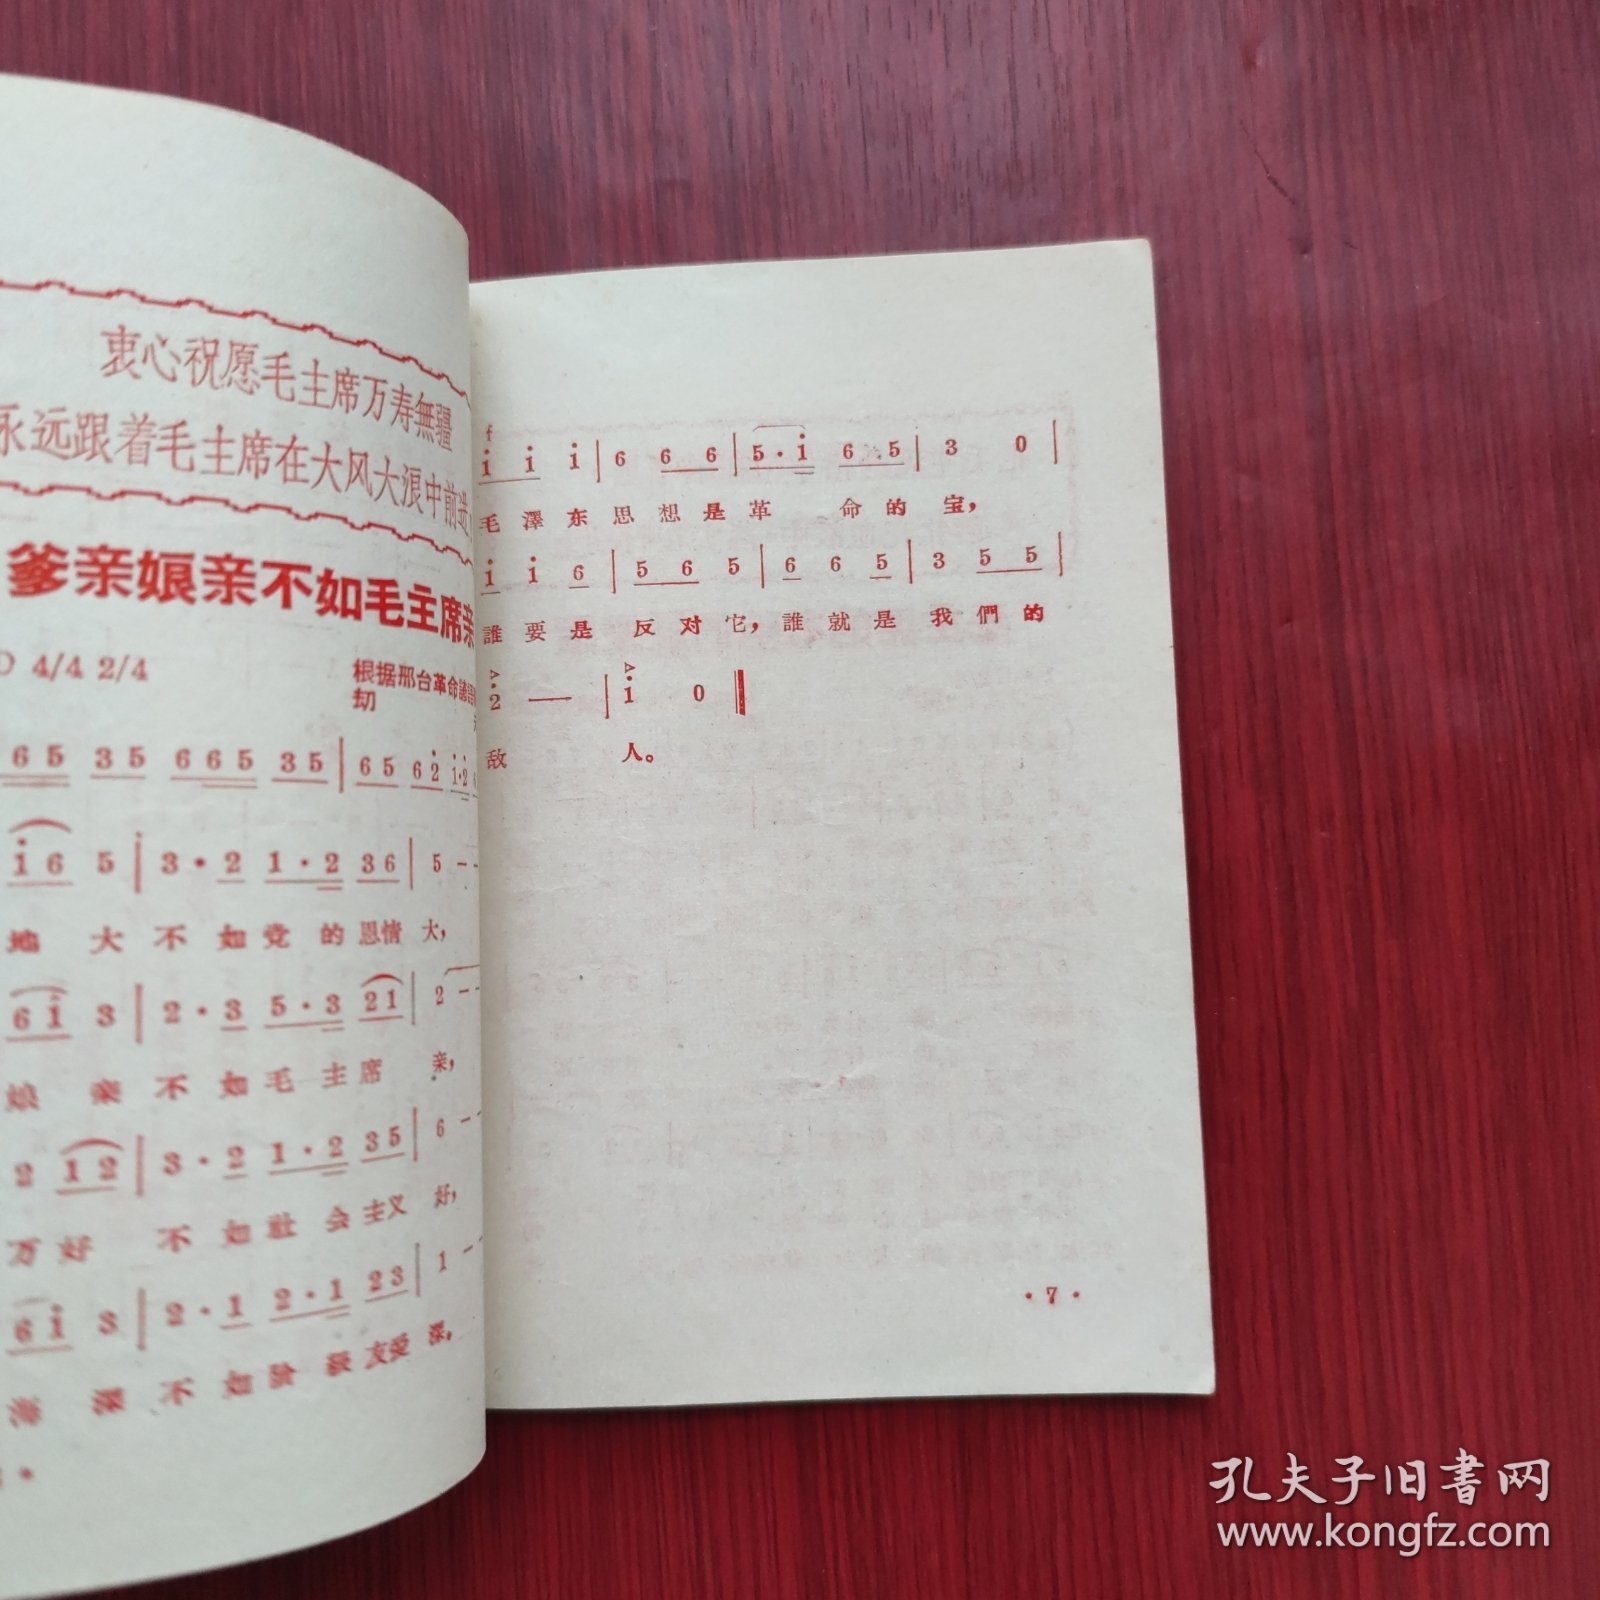 衷心祝愿毛主席万寿無疆
永远跟着毛主席在大风大浪中前进
爹亲娘亲不如毛主席亲
4/4 2/4
根据邢台革命
劫
6 5 3 5 6 6 5 3 5 | 6 5 6 2 1·2
1 6 5 | 3 · 2 1 · 2 3 6 | 5 - -
地 大 不 如 党 的 恩情 大,
6 1 3 | 2 · 3 5 · 3 2 1 | 2 - -
娘 亲 不 如 毛 主 席 亲,
2 1 2 | 3 · 2 1 · 2 3 5 | 6 - -
万 好 不 如 社 会 主义 好,
6 1 3 | 2 · 1 2 · 1 2 3 | 1 - -
海 深 不 如 阶 级 友爱 深,
f
i i i | 6 6 6 6 | 5 · i 6 5 | 3 0 |
毛 澤 东 思 想 是 革 命 的 宝,
i i 6 | 5 6 5 | 6 6 5 | 3 5 5 |
誰 要 是 反 对 它, 誰 就 是 我 們 的
2 — | i 0 ‖
敌 人。
· 7 ·
孔夫子旧書网
www.kongfz.com